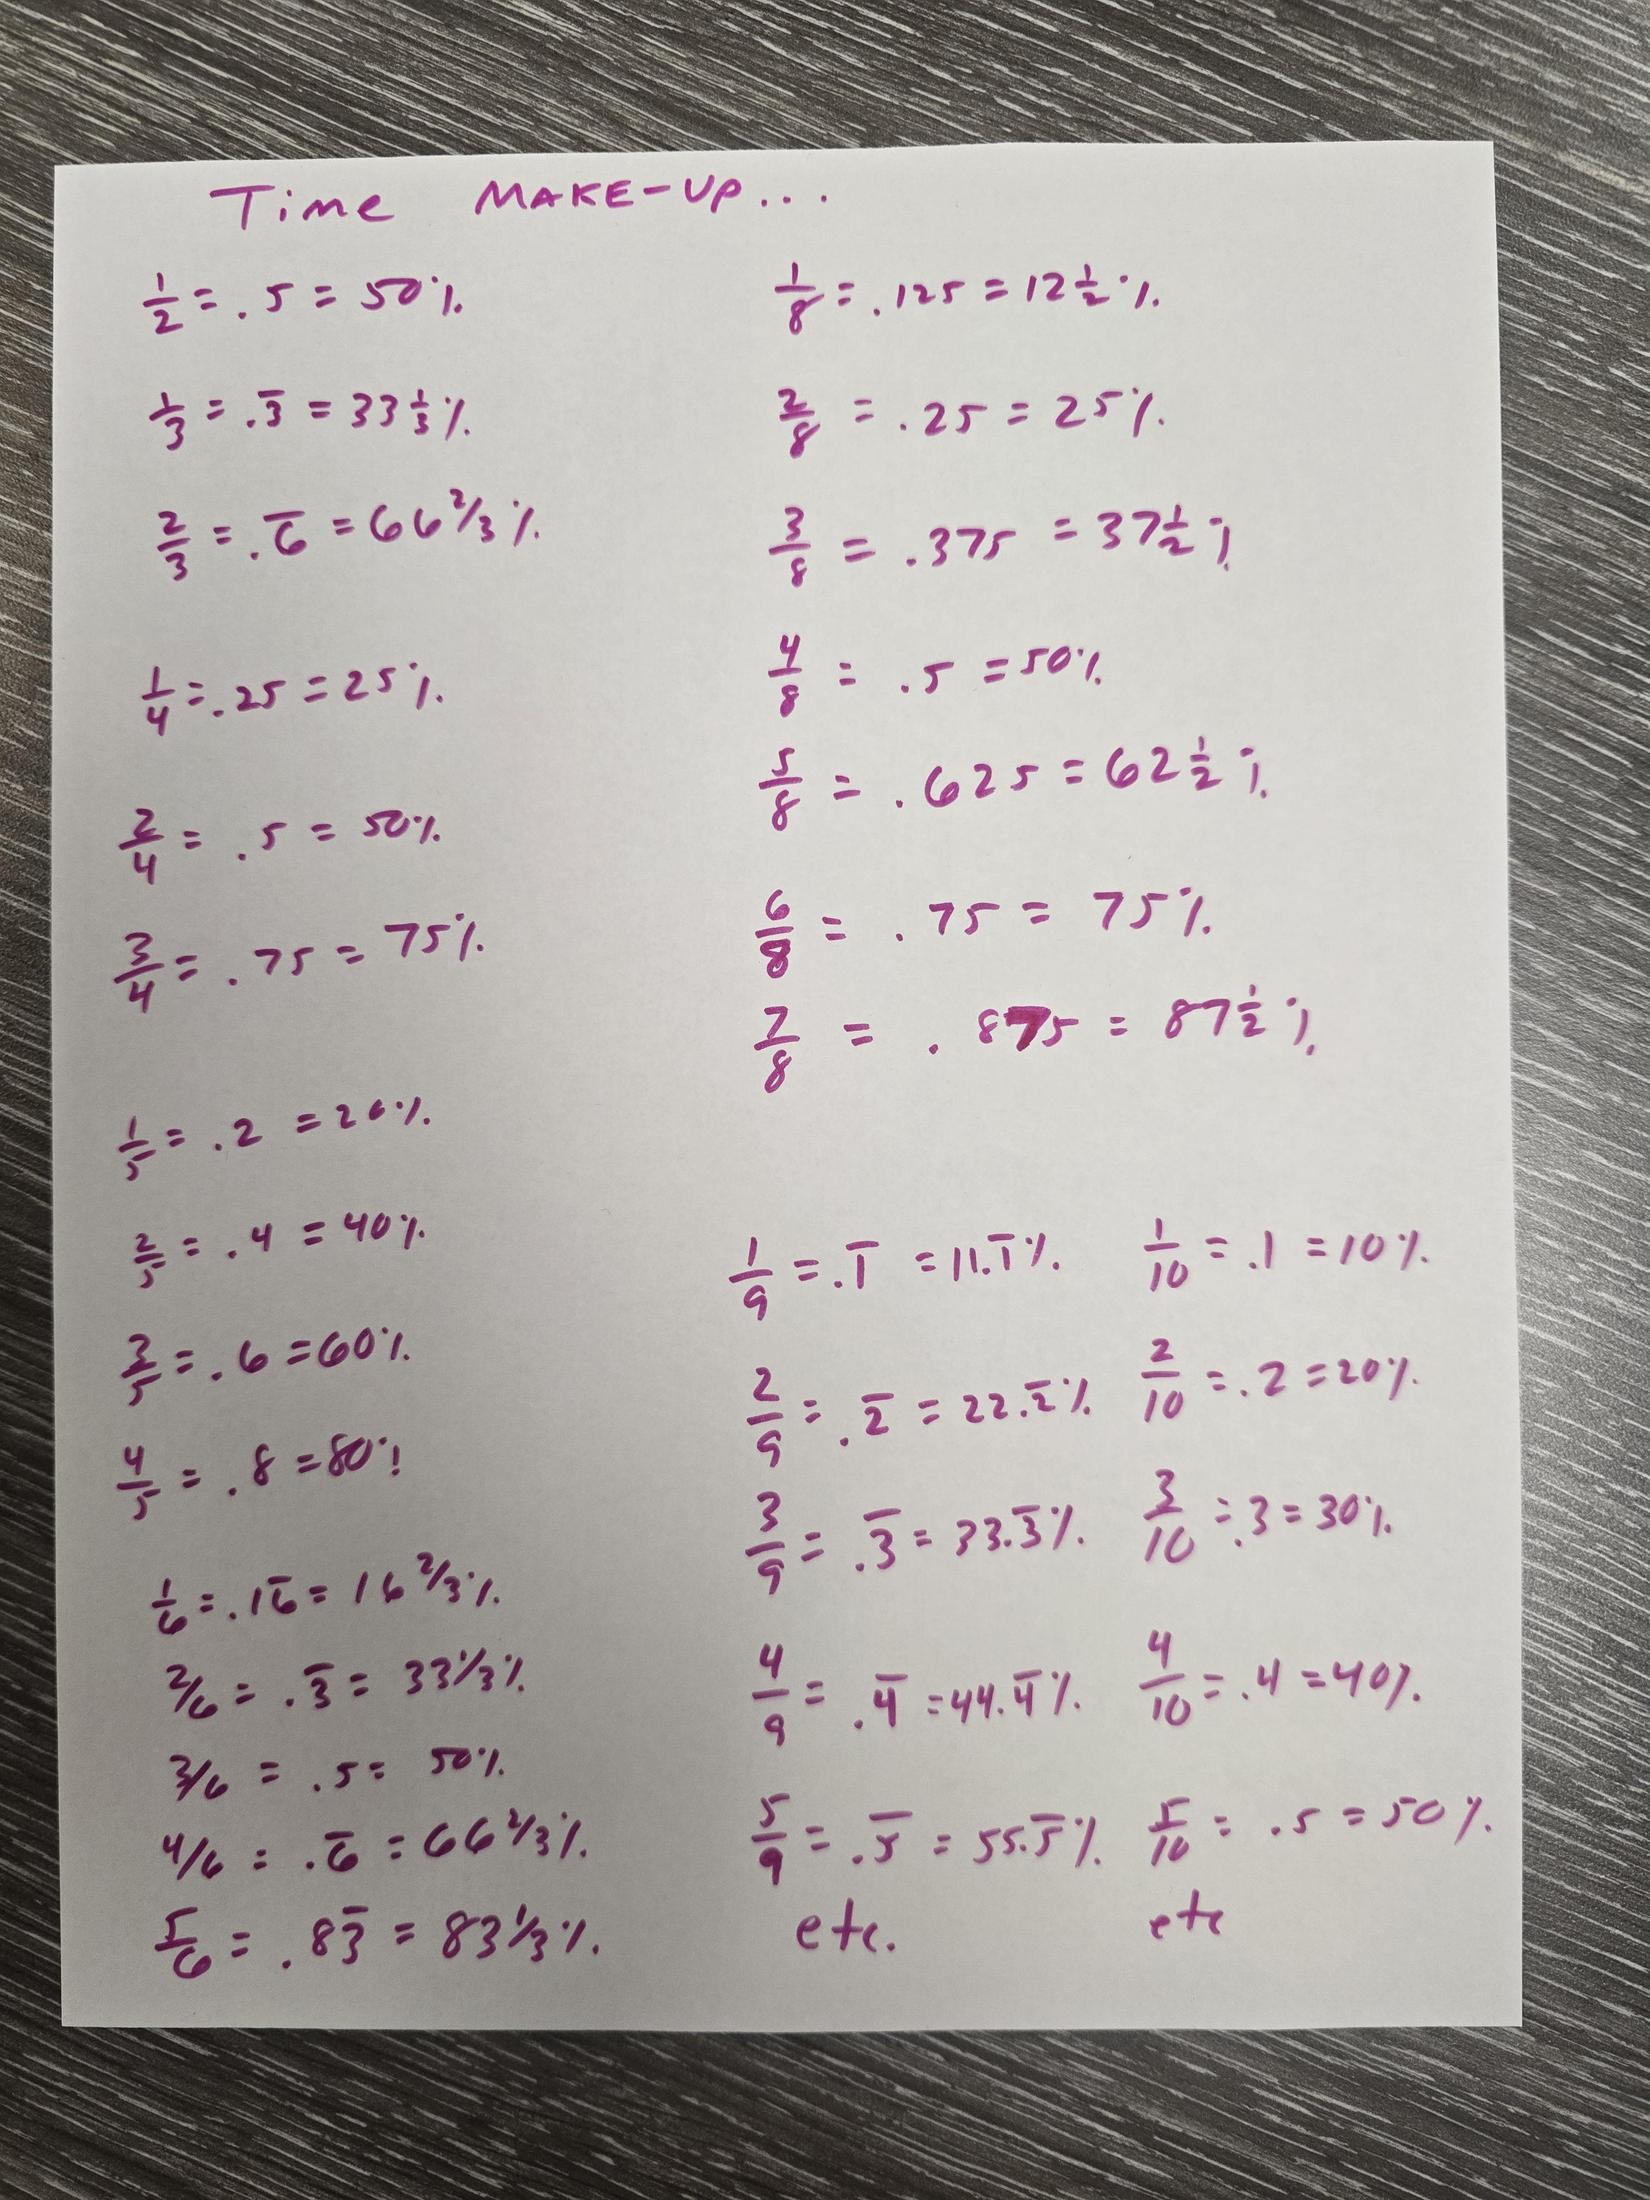 Time MAKE-UP...
1/2 = .5 = 50%
1/3 = .3̅ = 33 1/3%
2/3 = .6̅ = 66 2/3%
1/4 = .25 = 25%
2/4 = .5 = 50%
3/4 = .75 = 75%
1/5 = .2 = 20%
2/5 = .4 = 40%
3/5 = .6 = 60%
4/5 = .8 = 80%
1/6 = .16̅ = 16 2/3%
2/6 = .3̅ = 33 1/3%
3/6 = .5 = 50%
4/6 = .6̅ = 66 2/3%
5/6 = .83̅ = 83 1/3%
1/8 = .125 = 12 1/2%
2/8 = .25 = 25%
3/8 = .375 = 37 1/2%
4/8 = .5 = 50%
5/8 = .625 = 62 1/2%
6/8 = .75 = 75%
7/8 = .875 = 87 1/2%
1/9 = .1̅ = 11.1̅%
2/9 = .2̅ = 22.2̅%
3/9 = .3̅ = 33.3̅%
4/9 = .4̅ = 44.4̅%
5/9 = .5̅ = 55.5̅%
etc.
1/10 = .1 = 10%
2/10 = .2 = 20%
3/10 = .3 = 30%
4/10 = .4 = 40%
5/10 = .5 = 50%
etc